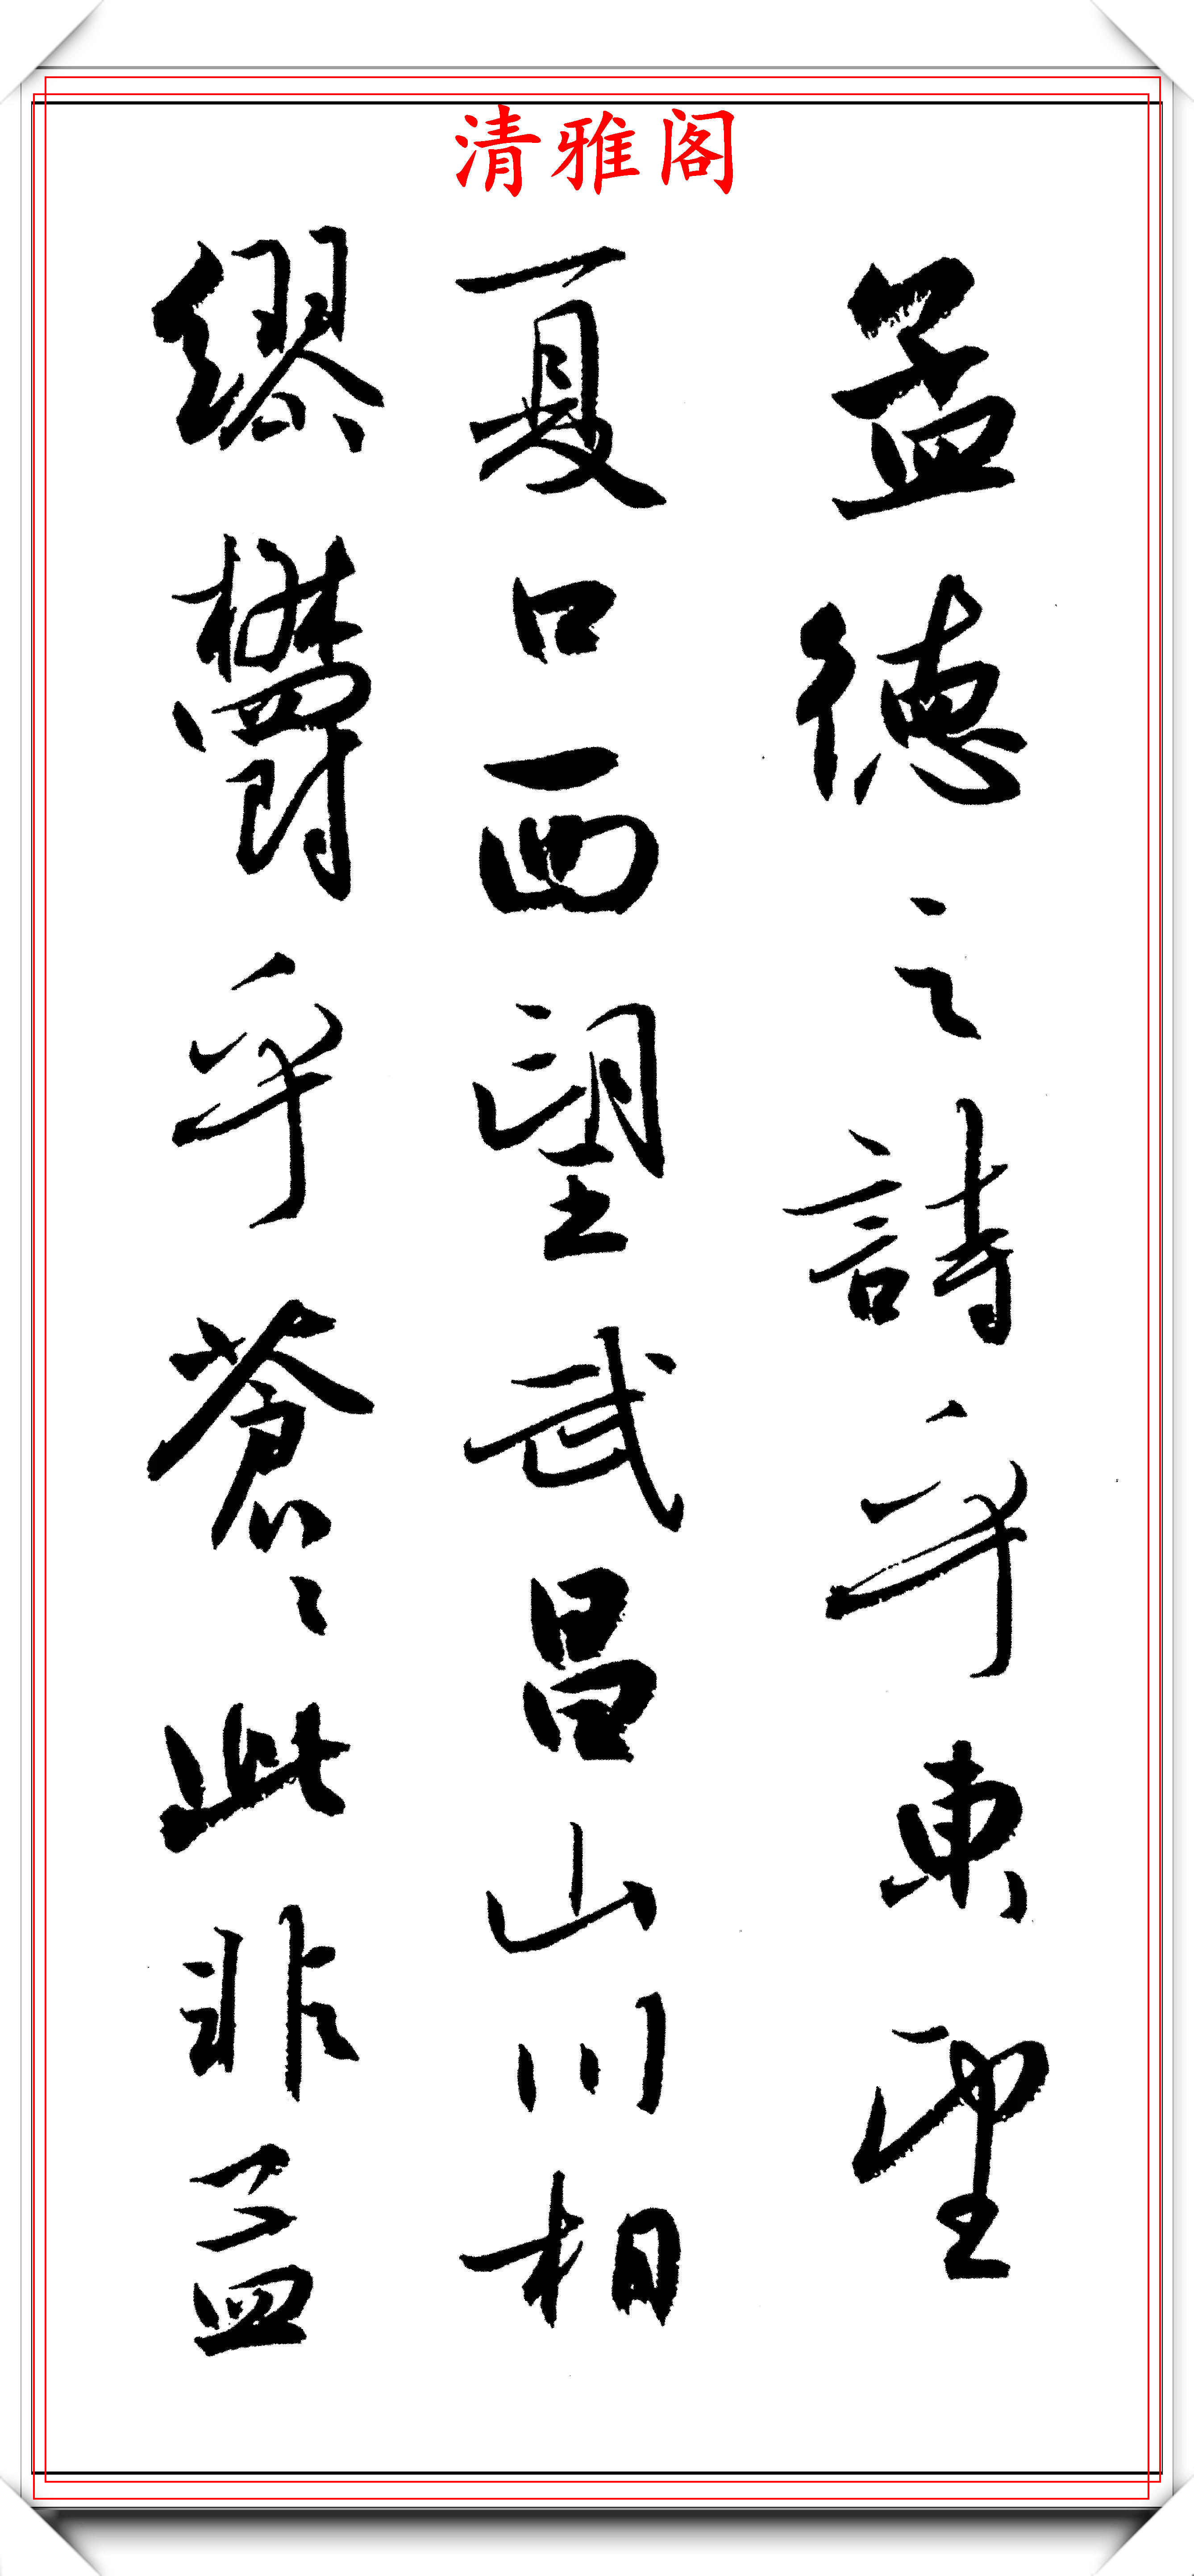 清雅阁
孟德之詩乎東望
夏口西望武昌山川相
繆鬱乎蒼々此非孟